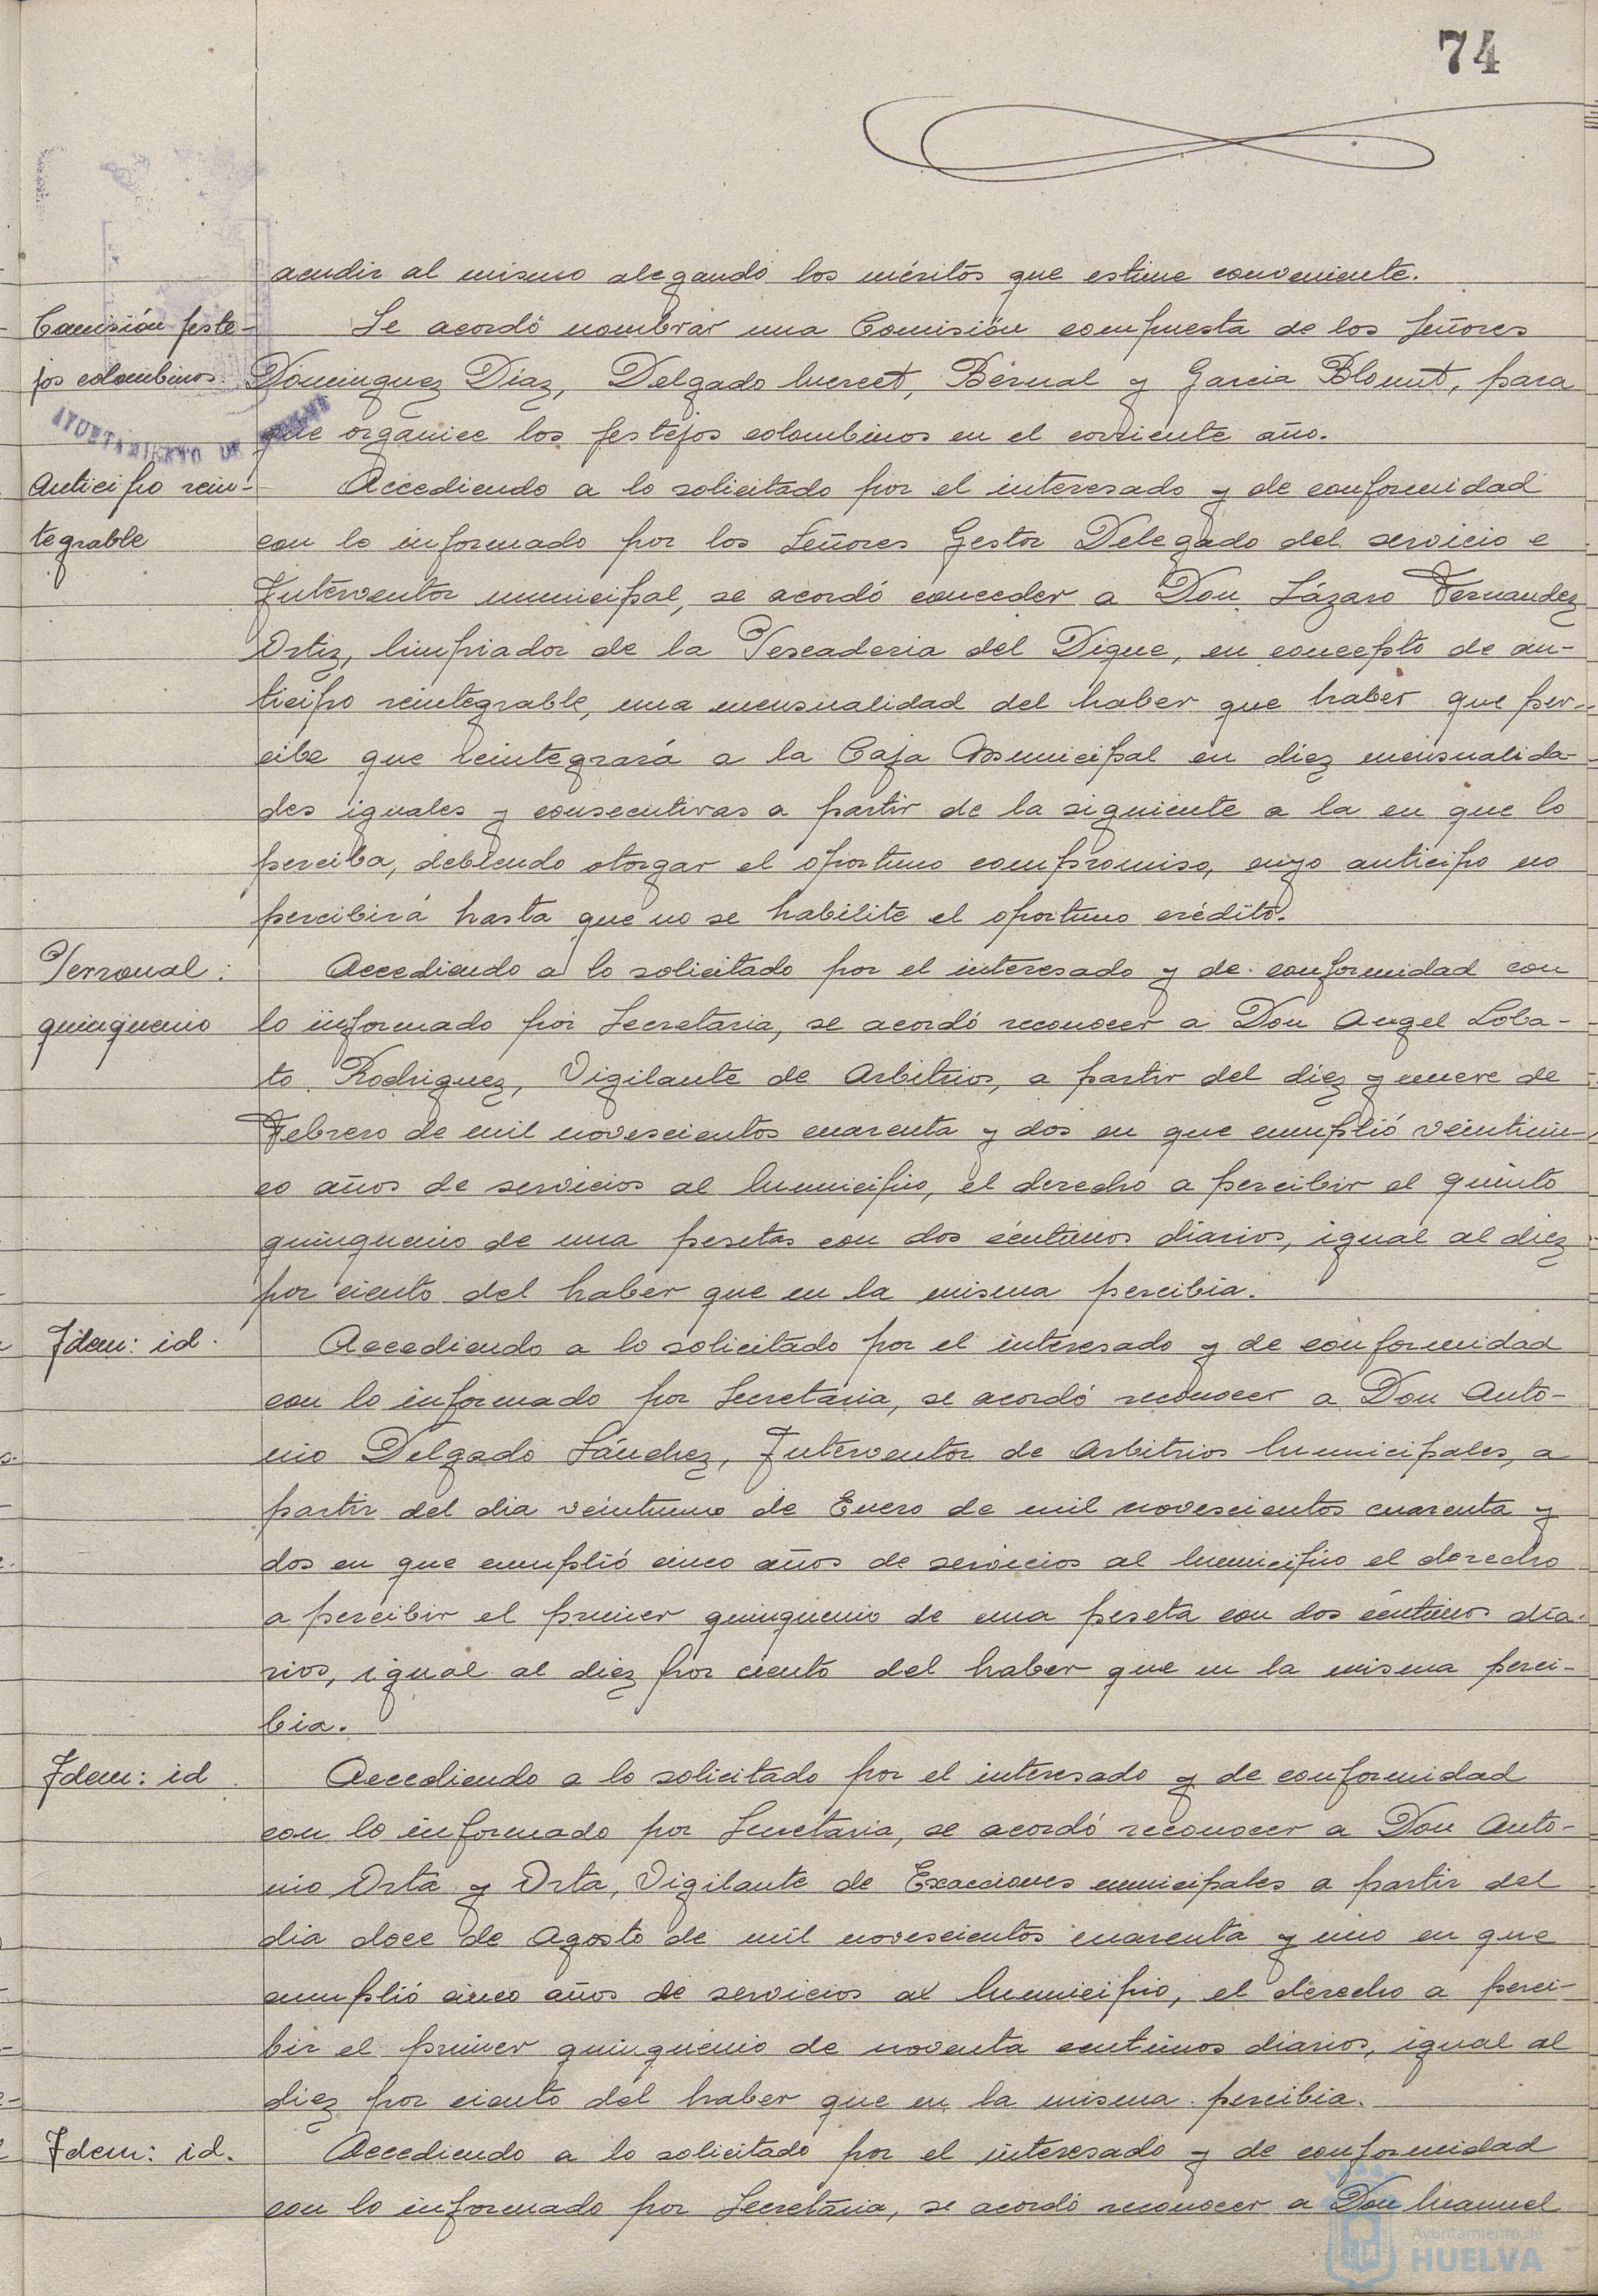 74
acudir al mismo alegando los méritos que estime conveniente.
Comisión feste-
jos colombinos.
Se acordó nombrar una Comisión compuesta de los Señores
Dominguez Díaz, Delgado Mercet, Bernal y Garcia Blomt, para
que organice los festejos colombinos en el corriente año.
AYUNTAMIENTO DE HUELVA
Anticipo rein-
tegrable
Accediendo a lo solicitado por el interesado y de conformidad
con lo informado por los Señores Gestor Delegado del servicio e
Interventor municipal, se acordó conceder a Don Lázaro Fernandez
Ortiz, limpiador de la Pescaderia del Dique, en concepto de an-
ticipo reintegrable, una mensualidad del haber que haber que per-
cibe que reintegrará a la Caja Municipal en diez mensualida-
des iguales y consecutivas a partir de la siguiente a la en que lo
perciba, debiendo otorgar el oportuno compromiso, cuyo anticipo no
percibirá hasta que no se habilite el oportuno crédito.
Personal:
quinquenio
Accediendo a lo solicitado por el interesado y de conformidad con
lo informado por Secretaria, se acordó reconocer a Don Angel Loba-
to Rodriguez, Vigilante de Arbitrios, a partir del diez y nueve de
Febrero de mil novescientos cuarenta y dos en que cumplió veinticin-
co años de servicios al Municipio, el derecho a percibir el quinto
quinquenio de una pesetas con dos céntimos diarios, igual al diez
por ciento del haber que en la misma percibia.
Idem: id.
Accediendo a lo solicitado por el interesado y de conformidad
con lo informado por Secretaria, se acordó reconocer a Don Anto-
nio Delgado Sánchez, Interventor de Arbitrios Municipales, a
partir del dia veintiuno de Enero de mil novescientos cuarenta y
dos en que cumplió cinco años de servicios al Municipio el derecho
a percibir el primer quinquenio de una peseta con dos céntimos dia-
rios, igual al diez por ciento del haber que en la misma perci-
bia.
Idem: id
Accediendo a lo solicitado por el interesado y de conformidad
con lo informado por Secretaria, se acordó reconocer a Don Anto-
nio Orta y Orta, Vigilante de Exacciones municipales a partir del
dia doce de Agosto de mil novescientos cuarenta y uno en que
cumplió cinco años de servicios al Municipio, el derecho a perci-
bir el primer quinquenio de noventa centimos diarios, igual al
diez por ciento del haber que en la misma percibia.
Idem: id.
Accediendo a lo solicitado por el interesado y de conformidad
con lo informado por Secretaria, se acordó reconocer a Don Manuel
Ayuntamiento de
HUELVA